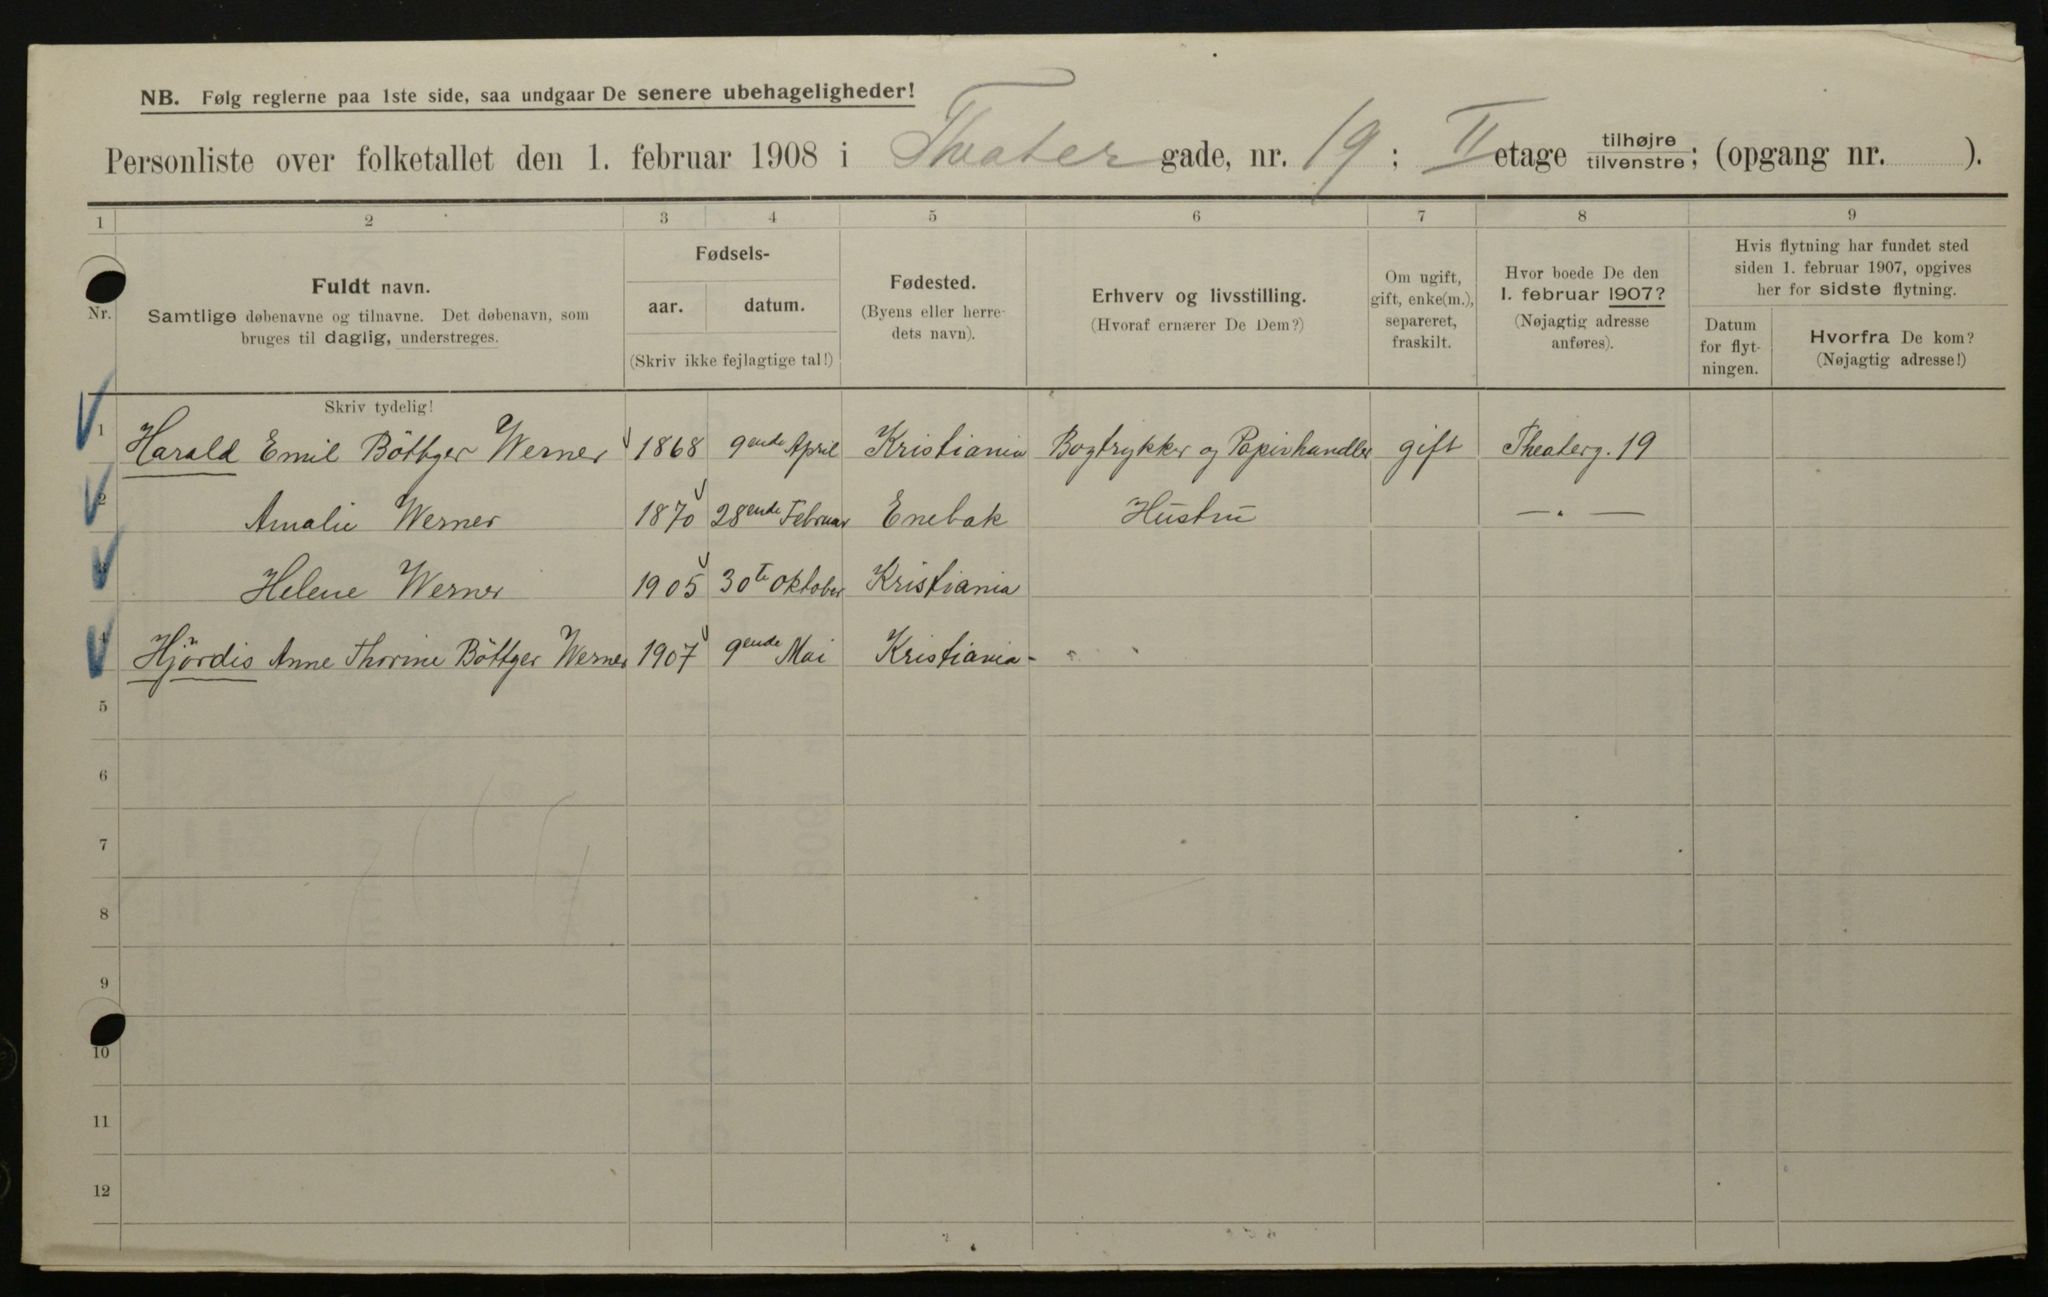 NB. Følg reglerne paa 1ste side, saa undgaar De senere ubehageligheder!
Personliste over folketallet den 1. februar 1908 i Theater gade, nr. 19 ; II etage tilhøjre tilvenstre; (opgang nr. ).
1 2 3 4 5 6 7 8 9
Nr.
Fuldt navn.
Samtlige døbenavne og tilnavne. Det døbenavn, som
bruges til daglig, understreges.
Fødsels-
aar. datum.
(Skriv ikke fejlagtige tal!)
Fødested.
(Byens eller herre-
dets navn).
Erhverv og livsstilling.
(Hvoraf ernærer De Dem?)
Om ugift,
gift, enke(m.),
separeret,
fraskilt.
Hvor boede De den
1. februar 1907?
(Nøjagtig adresse
anføres).
Hvis flytning har fundet sted
siden 1. februar 1907, opgives
her for sidste flytning.
Datum
for flyt-
ningen.
Hvorfra De kom?
(Nøjagtig adresse!)
Skriv tydelig!
1 Harald Emil Böttger Werner 1868 9ende April Kristiania Bogtrykker og Papirhandler gift Theaterg. 19
2 Amalie Werner 1870 28ende Februar Enebak Hustru — . —
3 Helene Werner 1905 30te Oktober Kristiania
4 Hjördis Anne Thorine Böttger Werner 1907 9ende Mai Kristiania -
5
6
7
8
9
10
11
12